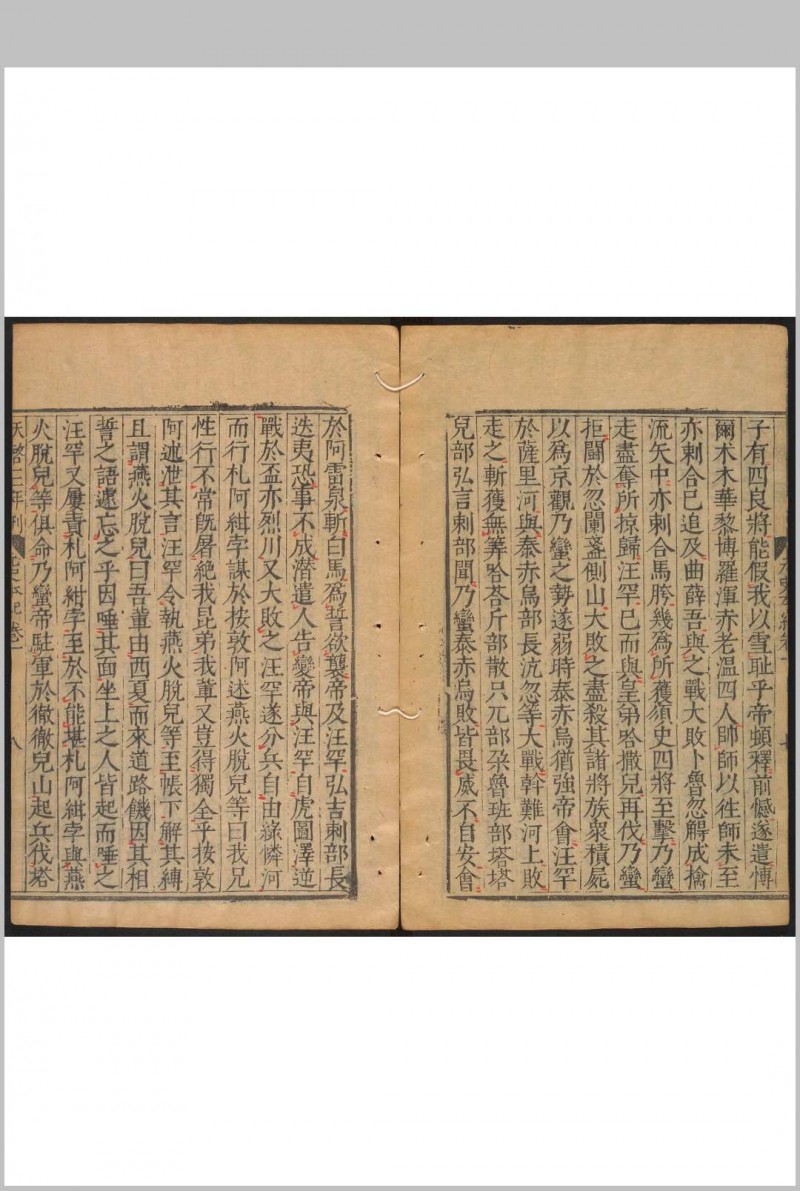 子有四良將能假我以雪耻乎帝頓釋前憾遂遣博
爾术木華黎博羅渾赤老溫四人帥師以徃師未至
亦剌合巳追及曲薛吾與之戰大敗卜魯忽䚟成擒
流矢中亦剌合馬胯幾爲所獲須臾四將至擊乃蠻
走盡奪所掠歸汪罕巳而與皇弟哈撒兒再伐乃蠻
拒鬬於忽闌盞側山大敗之盡殺其諸將族衆積屍
以爲京觀乃蠻之勢遂弱時泰赤烏猶強帝會汪罕
於薩里河與泰赤烏部長沆忽等大戰斡難河上敗
走之斬獲無筭哈荅斤部散只兀部朶魯班部塔塔
兒部弘吉剌部聞乃蠻泰赤烏敗皆畏威不自安會
於阿雷泉斬白馬爲誓欲襲帝及汪罕弘吉剌部長
迭夷恐事不成潜遣人告變帝與汪罕自虎圖澤逆
戰於盃亦烈川又大敗之汪罕遂分兵自由綠憐河
而行札阿紺孛謀於按敦阿述燕火脫兒等曰我兄
性行不常旣屠絶我昆弟我輩又豈得獨全乎按敦
阿述泄其言汪罕令執燕火脫兒等至帳下解其縛
且謂燕火脫兒曰吾輩由西夏而來道路饑困其相
誓之語遽忘之乎因唾其面坐上之人皆起而唾之
汪罕又屢責札阿紺孛至於不能堪札阿紺孛與燕
火脫兒等俱命乃蠻帝駐軍於徹徹兒山起兵伐塔
八